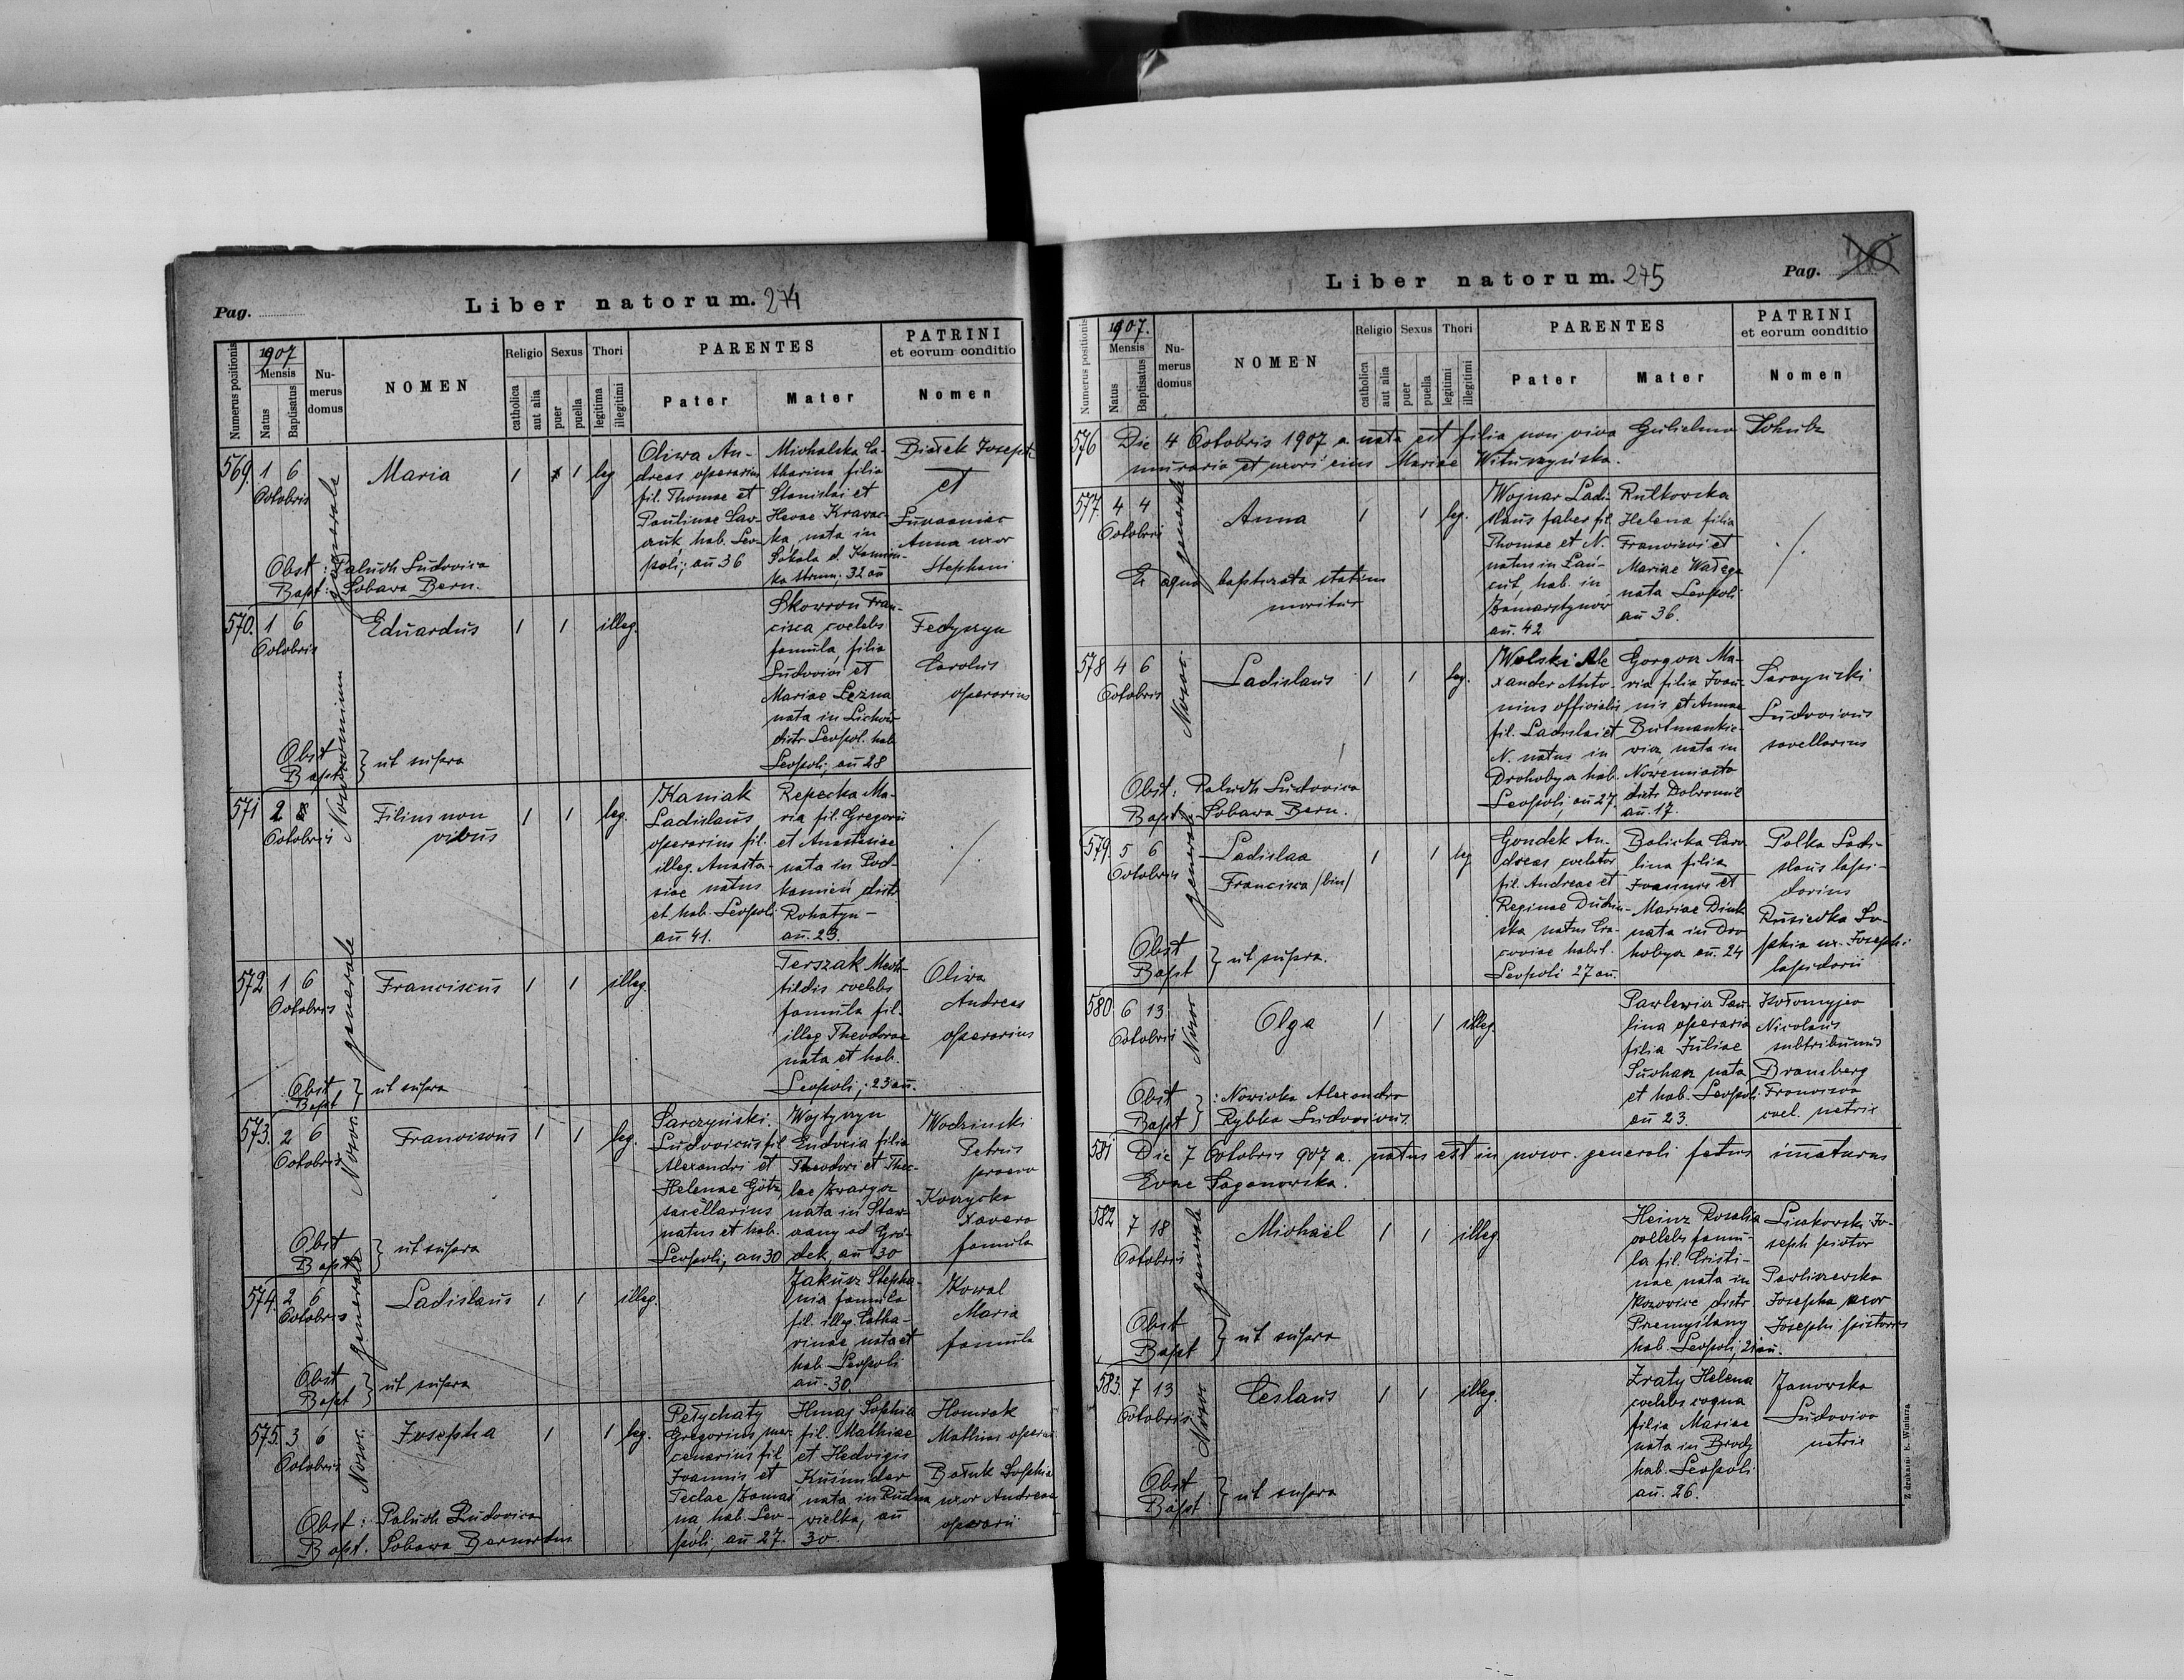 Pag.
Liber natorum. 274
Numerus positionis
1907
Mensis
Natus
Baptisatus
Numerus domus
NOMEN
Religio
catholica
aut alia
Sexus
puer
puella
Thori
legitima
illegitimi
PARENTES
Pater
Mater
PATRINI
et eorum conditio
Nomen
569. 1 6
Octobris
generale
Maria
1 1 leg
Oliwa An-
dreas operarius
fil. Thomae et
Paulinae Saw-
czuk hab. Leo-
poli; an 36
Michalska Ca-
tharina filia
Stanislai et
Hevae Krawec-
ka, nata in
Sokola d. Kamion-
ka strum; 32 an
Bielek Joseph
et
Anna uxor
Stephani
Obst: Paluch Ludovica
Bapt: Sobawa Bern.
570. 1 6
Octobris
Eduardus
1 1 illeg.
Skowron Fran-
cisca coelebs
famula, filia
Ludovici et
Mariae Lezna
nata in
distr Leopol. hab
Leopoli, an 28
Fedyczyn
Carolus
operarius
Obst
Bapt } ut supra
571 2
Octobris
Filius non
vivus
1 1 leg.
Kaniak
Ladislaus
operarius fil.
illeg. Anasta-
siae natus
et hab. Leopoli
an 41.
Repecka Ma-
ria fil. Gregorii
et Anastasiae
nata in Pod-
kamień distr
Rohatyn -
an. 23.
572 1 6
Octobris
generale
Franciscus
1 1 illeg.
Terszak Mech-
tildis coelebs
famula fil.
illeg Theodorae
nata et hab.
Leopoli; 23 an.
Oliwa
Andreas
operarius
Obst
Bapt } ut supra
573. 2 6
Octobris
Nosoc.
Franciscus
1 1 leg.
Sarczyński
Ludovicus fil
Alexandri et
Helenae Götz
sacellarius
natus et hab.
Leopoli, an 30
Wojtyczyn
Eudocia filia
Theodori et Thec-
lae
nata in Staw-
czany ad Gró-
dek, an 30
Wodzinski
Petrus
Xavera
famula
Obst
Bapt } ut supra
574. 2 6
Octobris
generale
Ladislaus
1 1 illeg.
Jakusz Stepha-
nia famula
fil. illeg. Catha-
rinae, nata et
hab. Leopoli
an. 30.
Kowal
Maria
famula
Obst
Bapt } ut supra
575. 3 6
Octobris
Nosoc.
Josepha
1 1 leg.
Pełychaty
Gregorius mer-
cenarius fil
Joannis et
Teclae
na hab. Leo-
poli, an 27.
Hmaj Sophia
fil. Mathiae
et Hedvigis
Kusnider
nata in Rudna
wielka, an
30.
Homiak
Mathias operar.
Bałuk Sophia
uxor Andreae
operarii
Obst: Paluch Ludovica
Bapt. Sobawa Bernardus
Liber natorum. 275
Pag.
Numerus positionis
1907.
Mensis
Natus
Baptisatus
Numerus domus
NOMEN
Religio
catholica
aut alia
Sexus
puer
puella
Thori
legitimi
illegitimi
PARENTES
Pater
Mater
PATRINI
et eorum conditio
Nomen
576 Die 4 Octobris 1907 a. nata est filia non viva Gulielmo Schulz
murario et uxori eius Mariae Wituszyńska.
577. 4 4
Octobris
generale
Anna
1 1 leg.
Wojnar Ladi-
slaus faber fil
Thomae et N.
natus in Łań-
cut, hab. in
Zamarstynów
an. 42
Rutkowska
Helena filia
Francisci et
Mariae Wałęga
nata Leopoli
an 36.
Ex aqua baptizata statim
moritur
578 4 6
Octobris
Nosoc.
Ladislaus
1 1 leg.
Wolski Ale
xander Anto-
nius officialis
fil. Ladislai et
N. natus in
Drohobycz hab.
Leopoli, an 27.
Gorgon Ma-
ria filia Joan-
nis et Annae
Butmankie-
wicz, nata in
Nowemiasto
distr Dobromil
an. 17.
Sarczyński
Ludovicus
sacellarius
Obst: Paluch Ludovica
Bapt: Sobawa Bern.
579. 5 6
Octobris
generale
Ladislaa
Francisca /bin/
1 1 leg
Gondek An-
dreas
fil. Andreae et
Reginae
ska natus Cra-
coviae habit.
Leopoli 27 an.
Balicka Caro
lina filia
Joannis et
Mariae
nata in Dro
hobycz an. 24
Polka Ladi-
slaus lapi-
darius
Rusiecka So-
phia ux. Josephi
lapidarii
Obst
Bapt } ut supra.
580 6 13
Octobris
Nosoc
Olga
1 1 illeg.
Pawlewicz Pau-
lina operaria
filia Juliae
nata
et hab. Leopoli
an 23.
Kołomyjec
Nicolaus
subtribunus
Bramberg
Francisca
coel. netrix
Obst
Bapt } : Nowicka Alexandra
Rybka Ludovicus.
581 Die 7 Octobris 907 a. natus est in nosoc. generali fetus immaturus
Evae Saganowska.
582 7 18
Octobris
generale
Michaël
1 1 illeg
Heinz Rosalia
coelebs famu-
la fil. Cristi-
nae nata in
distr
Przemyślany
hab. Leopoli, 21 an.
Liskowski Jo-
seph pictor
Pavliszewska
Josepha uxor
Josephi pictoris
Obst
Bapt } ut supra
583. 7 13
Octobris
Nosoc
Ceslaus
1 1 illeg.
Zraty Helena
coelebs coqua
filia Mariae
nata in Brody
hab. Leopoli
an. 26.
Janowska
Ludovica
netrix
Obst
Bapt } ut supra
Z drukarni E. Winiarza